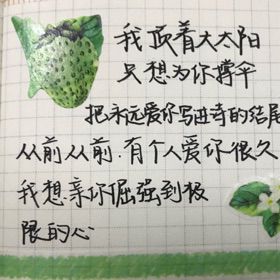 我顶着大太阳
只想为你撑伞
把永远爱你写进诗的结尾
从前从前,有个人爱你很久
我想亲你倔强到极
限的心